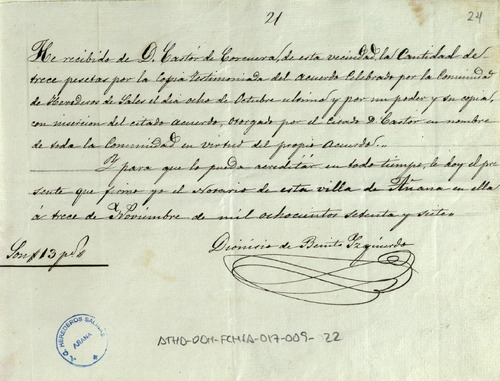 21
24
He recibido de D. Castór de Corcuera, de esta vecindad, la Cantidad de
trece pesetas por la Copia testimoniada del Acuerdo Celebrado por la Comunidad
de Herederos de Sales el dia ocho de Octubre ultimo y por un poder y su copia,
con insercion del citado Acuerdo, otorgado por el Citado D. Castor en nombre
de toda la Comunidad en virtud del propio Acuerdo.
Y para que lo pueda acreditár en todo tiempo, le doy el pre
sente que firmo yo el Notario de esta villa de Añana en ella
á trece de Noviembre de mil ochocientos setenta y siete.
Son 13 p.s
Dionisio de Benito Izquierdo
HEREDEROS SALINAS
AÑANA
ATHA-DOH-FCMSA-017-009-22